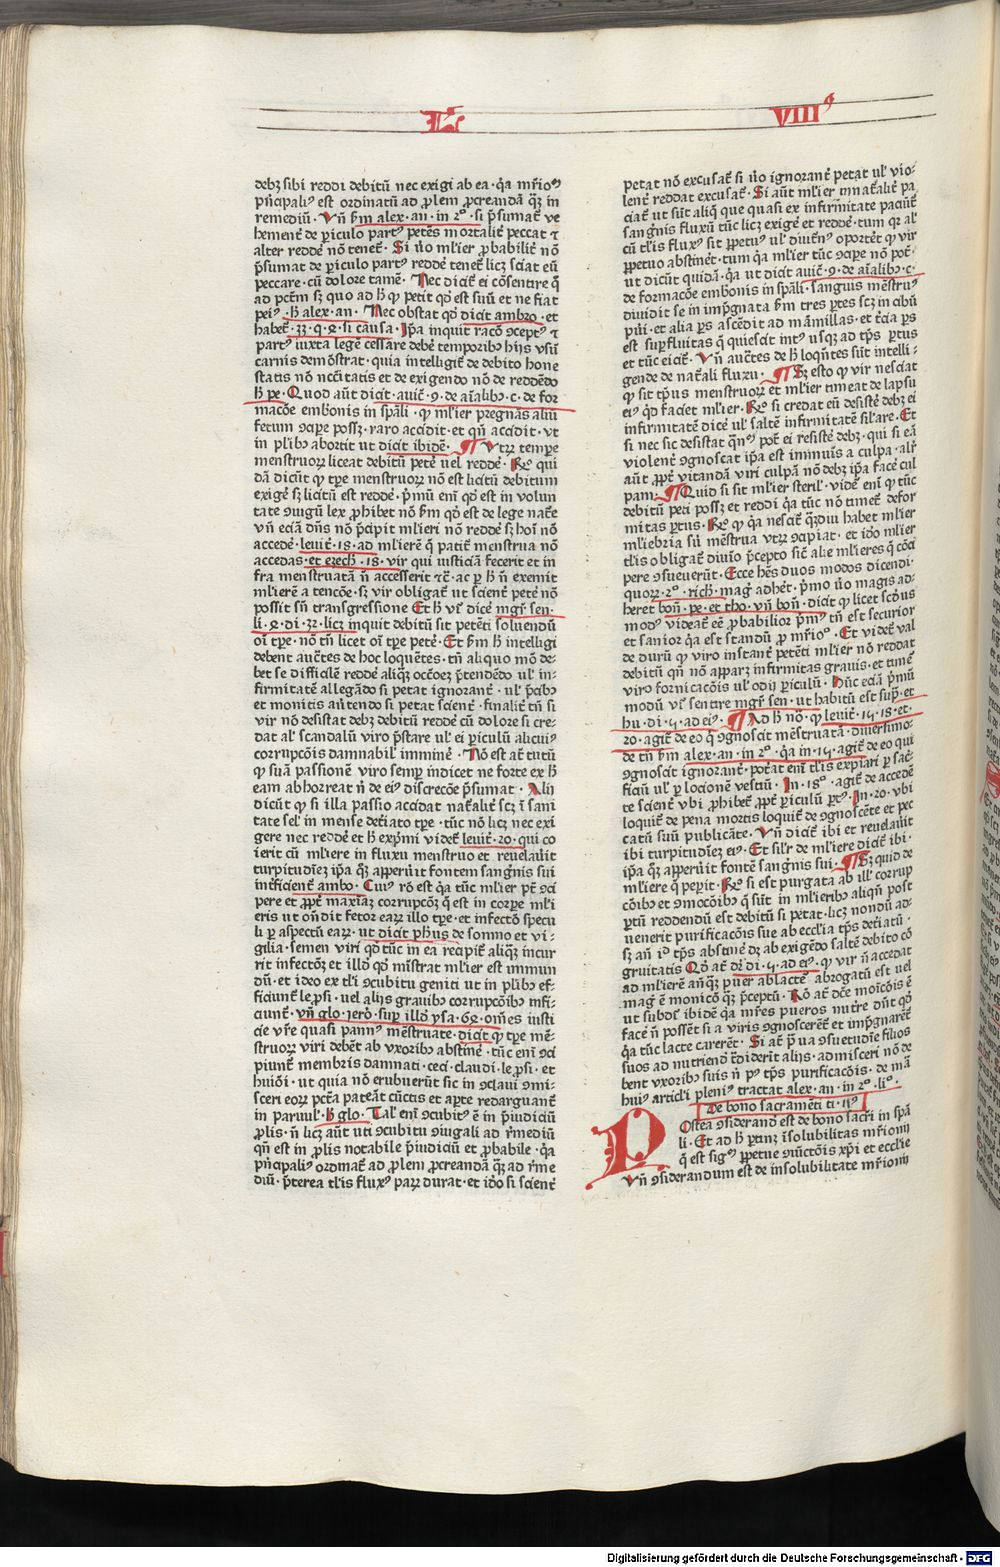 L VIII⁹
debꝫ sibi reddi debitū nec exigi ab ea · q̄a mr̄io⁹
pn̄cipali⁹ est ordinatū ad ꝓlem ꝓcreandā q̄ꝫ in
remediū · Vn̄ ẜm alex · an · in 2º · si p̄sumat̄ ve
hement̄ de ꝑiculo part⁹ petēs mortalit̄ peccat ⁊
alter redde᷑ nō tenet̄ · Si ṽo ml̓ier ꝓbabilit̄ nō
p̄sumat de ꝑiculo part⁹ redde᷑ tenet̄ licꝫ sciat eū
peccare · cū dolore tamē · Nec dicit̄ ei cōsentire q̄
ad pctm̄ sꝫ quo ad h̄ ꝙ petit qd̄ est suū et ne fiat
pei⁹ · h̄ alex · an · Nec obstat qd̄ dicit ambro · et
habet̄ · 33 · q · 4 · si causa · Ip̄a inquit racō ɔcept⁹ ⁊
part⁹ iuxta legē cessare debe᷑ temporibꝫ hijs vsū
carnis demōstrat · quia intelligit̄ de debito hone
statis nō nc̄citatis et de exigendo nō de reddēdo
h̄ pe · Quod aūt dicit · auic̄ · 9 · de aīalibꝫ · c · de for
macōe embrionis in spāli · ꝙ ml̓ier pregnās aliū
fetum ɔcipe᷑ possꝫ · raro accidit · et qn̄ accidit · vt
in plibꝫ abortit ut dicit ibidē · ¶ Vtrꝫ tempe᷑
menstruoꝝ liceat debitū pete᷑ uel redde᷑ · R̄º qui
dā dicūt ꝙ tpe᷑ menstruoꝝ nō est licitū debitum
exige᷑ sꝫ licitū est redde᷑ · p̄mū enī qd̄ est in volun
tate ɔiugū lex ꝓhibet nō ẜm qd̄ est de lege nat̄e
vn̄ eciā dn̄s nō p̄cipit ml̓ieri nō redde᷑ sꝫ hoī nō
accede᷑ · leuit̄ · 18 · ad ml̓ierē q̄ patit̄ menstrua nō
accedas · et ezech̄ · 18 · vir qui iusticiā fecerit et in
fra menstruatā n̄ accesserit ⁊c̄ · ac ꝑ h̄ n̄ exemit
ml̓ierē a tencōe · sꝫ vir obligat̄ ut scient̄ pete᷑ nō
possit sn̄ transgressione Et h̄ vr̄ dice᷑ mgr̄ sen ·
li · 4 · di · 32 · licꝫ inquit debitū sit petēti soluendū
oī tpe᷑ · nō tn̄ licet oī tpe᷑ pete᷑ · Et ẜm h̄ intelligi
debent auct̄es de hoc loquētes · tn̄ aliquo mō de-
bet se difficilē redde᷑ aliqꝫ occōeꝫ p̄tendēdo ul̓ in-
firmitatē allegādo si petat ignorant̄ · ul̓ p̄cibꝫ
et monitis au̾tendo si petat scient̄ · finalit̄ tn̄ si
vir nō desistat debꝫ debitū redde᷑ cū dolore si cre-
dat al̓ scandalū viro p̄stare ul̓ ei ꝑiculū alicui⁹
corrupcōis damnabil̓ imminē · Nō est at̄ tutū
ꝙ suā passionē viro semꝑ indicet ne forte ex h̄
eam abhorreat n̄ de ei⁹ discrecōe p̄sumat · Alij
dicūt ꝙ si illa passio accidat nat̄alit̄ scꝫ ī sani
tate sel̓ in mense det̄iato tpe᷑ · tūc nō licꝫ nec exi
gere nec redde᷑ et h̄ exp̄mi videt̄ leuit̄ · 20 · qui co
ierit cū ml̓iere in fluxu menstruo et reuelauit
turpitudiēꝫ ip̄a q̄ꝫ apperuit fontem sangn̄is sui
int̄ficient̄ ambo · Cui⁹ rō est q̄a tūc ml̓ier pt̄ ɔci
pere et ꝓpt̄ maxiāꝫ corrupcōꝫ q̄ est in corpe᷑ ml̓i
eris ut on̄dit fetor eaꝝ illo tpe᷑ · et infectō specu
li ꝑ aspectū eaꝝ · ut dicit ph̄us de somno et vi-
gilia · semen viri qd̄ tūc in ea recipit̄ aliqꝫ incur
rit infectōꝫ et illd̄ qd̄ mīstrat ml̓ier est immun
dū · et ideo ex tl̓i ɔcubitu geniti ut in plibꝫ ef-
ficiunt̄ lep̄si · uel alijs grauibꝫ corrupcōibꝫ īnfi-
ciunt̄ · vn̄ glo · jerō · suꝑ illd̄ ysa · 64 · om̄es iusti
cie vr̄e quasi pann⁹ menstruate · dicit ꝙ tpe᷑ mē-
struoꝝ viri debēt ab vxoribꝫ abstine᷑ · tūc enī ɔci
piunt̄ membris damnati · ceci · claudi · lep̄si · et
huiōi · ut quia nō erubuerūt sic in ɔclaui ɔmi-
sceri eoꝝ pct̄a pateāt cūctis et apte redarguant̄
in paruul̓ · h̄ glo · Tal̓ enī ɔcubit⁹ ē in p̄iudiciū
ꝓlis · n̄ licꝫ aūt uti ɔcubitu ɔiugali ad r̄mediū
qn̄ est in ꝓlis notabile p̄iudiciū et ꝓbabile · q̄a
pn̄cipali⁹ ordīat̄ ad ꝓlem ꝓcreandā q̄ꝫ ad r̄me
diū · p̄terea tl̓is flux⁹ paꝝ durat · et iōo si scient̄
petat nō excusat̄ si ṽo ignorant̄ petat ul̓ vio-
lent̄ reddat excusat̄ · Si aūt ml̓ier innat̄alit̄ pa
ciat̄ ut sūt aliq̄ que quasi ex infirmitate paciūt̄
sangn̄is fluxū tūc licꝫ exige᷑ et redde᷑ · tum qꝛ al̓
cū tl̓is flux⁹ sit ꝑpetu⁹ ul̓ diutin⁹ oportet̄ ꝙ vir
ꝑpetuo abstinet̄ · tum q̄a ml̓ier tūc ɔcipe᷑ nō pōt ·
ut dicūt quidā · q̄a ut dicit auic̄ · 9 · de aīalibꝫ · c ·
de formacōe embrionis in spāli · sanguis mēstru⁹
diuidit̄ se in imp̄gnata ẜm tres ꝑtes scꝫ in cibū
pūi · et alia ꝑs ascēdit ad māmillas · et t̄cia ꝑs
est suꝑfluitas q̄ quiescit int⁹ usqꝫ ad tp̄s ꝑtus
et tūc eicit̄ · Vn̄ auct̄es de h̄ loqn̄tes sūt intelli-
gende de nat̄ali fluxu · ¶ Sꝫ esto ꝙ vir nesciat
ꝙ sit tp̄us menstruoꝝ et ml̓ier timeat de lapsu
ei⁹ qd̄ faciet ml̓ier · R̄º si credat eū desiste᷑ debꝫ ei
infirmitatē dice᷑ ul̓ saltē infirmitatē sil̓are · Et
si nec sic desistat qn̄⁹ pōt ei resiste᷑ debꝫ · qui si eā
violent̄ ɔgnoscat ip̄a est immuīs a culpa · al̓r
aūt ꝓpt̄ vitandā viri culpā nō debꝫ ip̄a face᷑ cul
pam · ¶ Quid si sit ml̓ier steril̓ · vide᷑ enī ꝙ tūc
debitū peti possꝫ et reddi q̄a tūc nō timet̄ defor
mitas ꝑtus · R̄º ꝙ q̄a nescit̄ qꝫdiu habet ml̓ier
ml̓iebria sū mēstrua vtrꝫ ɔcipiat · et iōo ml̓ier
tl̓is obligat̄ diuīo p̄cepto sic̄ alie ml̓ieres q̄ cōci
pere ɔsueuerūt · Ecce hēs duos modos dicendi ·
quoꝝ · 2º · rich̄ · mag̾ adhet̄ · p̄mo ṽo magis ad-
heret bon̄ · pe · et tho · vn̄ bon̄ · dicit ꝙ licet scd̄us
mod⁹ videat̄ eē ꝓbabilior p̄m⁹ tn̄ est securior
et sanior q̄a est standū ꝓ mr̄io⁹ · Et videt̄ val
de durū ꝙ viro instant̄ petēti ml̓ier nō reddat
debitū qn̄ nō apparꝫ infirmitas grauis · et time᷑
viro fornicacōis ul̓ odij ꝑiculū · Hūc eciā p̄mū
modū vr̄ sentire mgr̄ sen · ut habitū est suꝑ⁹ et
hu · di · 5 · ad ei⁹ · ¶ Ad h̄ nō · ꝙ leuit̄ · 15 · 18 · et ·
20 · agit̄ de eo q̄ ɔgnoscit mēstruatā · diuersimo-
de tn̄ ẜm alex · an · in 2º · q̄a in · 15 · agit̄ de eo qui
ɔgnoscit ignorant̄ · pot̄at enī tl̓is expiari ꝑ sac̄-
ficiū ul̓ ꝑ locionē vestiū · In · 18º · agit̄ de accedē
te scient̄ vbi ꝓhibet̄ ꝓpt̄ ꝑiculū ꝑt⁹ · In · 20 · vbi
loquit̄ de pena mortis loquit̄ de ɔgnoscēte et pec
catū suū publicāte · Vn̄ dicit̄ ibi et reuelauit
ibi turpitudiēꝫ ei⁹ · Et sil̓r de ml̓iere dicit̄ ibi ·
ip̄a q̄ꝫ apperuit fontē sangn̄is sui · ¶ Sꝫ quid de
ml̓iere q̄ peꝑit · R̄º si est purgata ab ill̓ corrup
cōibꝫ et ɔmocōibꝫ q̄ sūt in ml̓ieribꝫ aliqn̄ post
ꝑtū reddendū est debitū si petat · licꝫ nondū ad-
uenerit purificacōis sue ab eccl̓ia tp̄s det̄iatū ·
sꝫ an̄ id̄ tp̄s abstine᷑ dꝫ ab exigēdo saltē debito cō
gruitatis Qd̄ at̄ dꝛ di · 5 · ad ei⁹ · ꝙ vir n̄ accedat
ad ml̓ierē an̄qꝫ puer ablactet̄ abrogatū est uel
mag̾ ē monicō q̄ꝫ p̄ceptū · R̄o at̄ dc̄e moīcōis ē
ut subdit̄ ibidē q̄a mr̄es pueros nutrire dn̄t qd̄
face᷑ n̄ possēt si a viris ɔgnoscerēt̄ et imp̄gnarēt̄
q̄a tūc lacte carerēt · Si at̄ p̄ ua ɔsuetudīe filios
suos ad nutriend̄ t̄diderit̄ alijs · admisceri nō de
bent vxoribꝫ suis n̄ p⁹ tp̄s purificacōis · de mā
hui⁹ articl̓i pleni⁹ tractat alex · an · in 2º · liº ·
De bono sacramēti ti · ij⁹
POstea ɔsiderand̄ est de bono sacrī in spā
li · Et ad h̄ ꝑtinꝫ īsolubilitas mr̄ionij
q̄ est sig⁹ ꝑpetue ɔiūctōis xp̄i et eccl̓ie
Vn̄ ɔsiderandum est de insolubilitate mr̄ionij
Digitalisierung gefördert durch die Deutsche Forschungsgemeinschaft - DFG